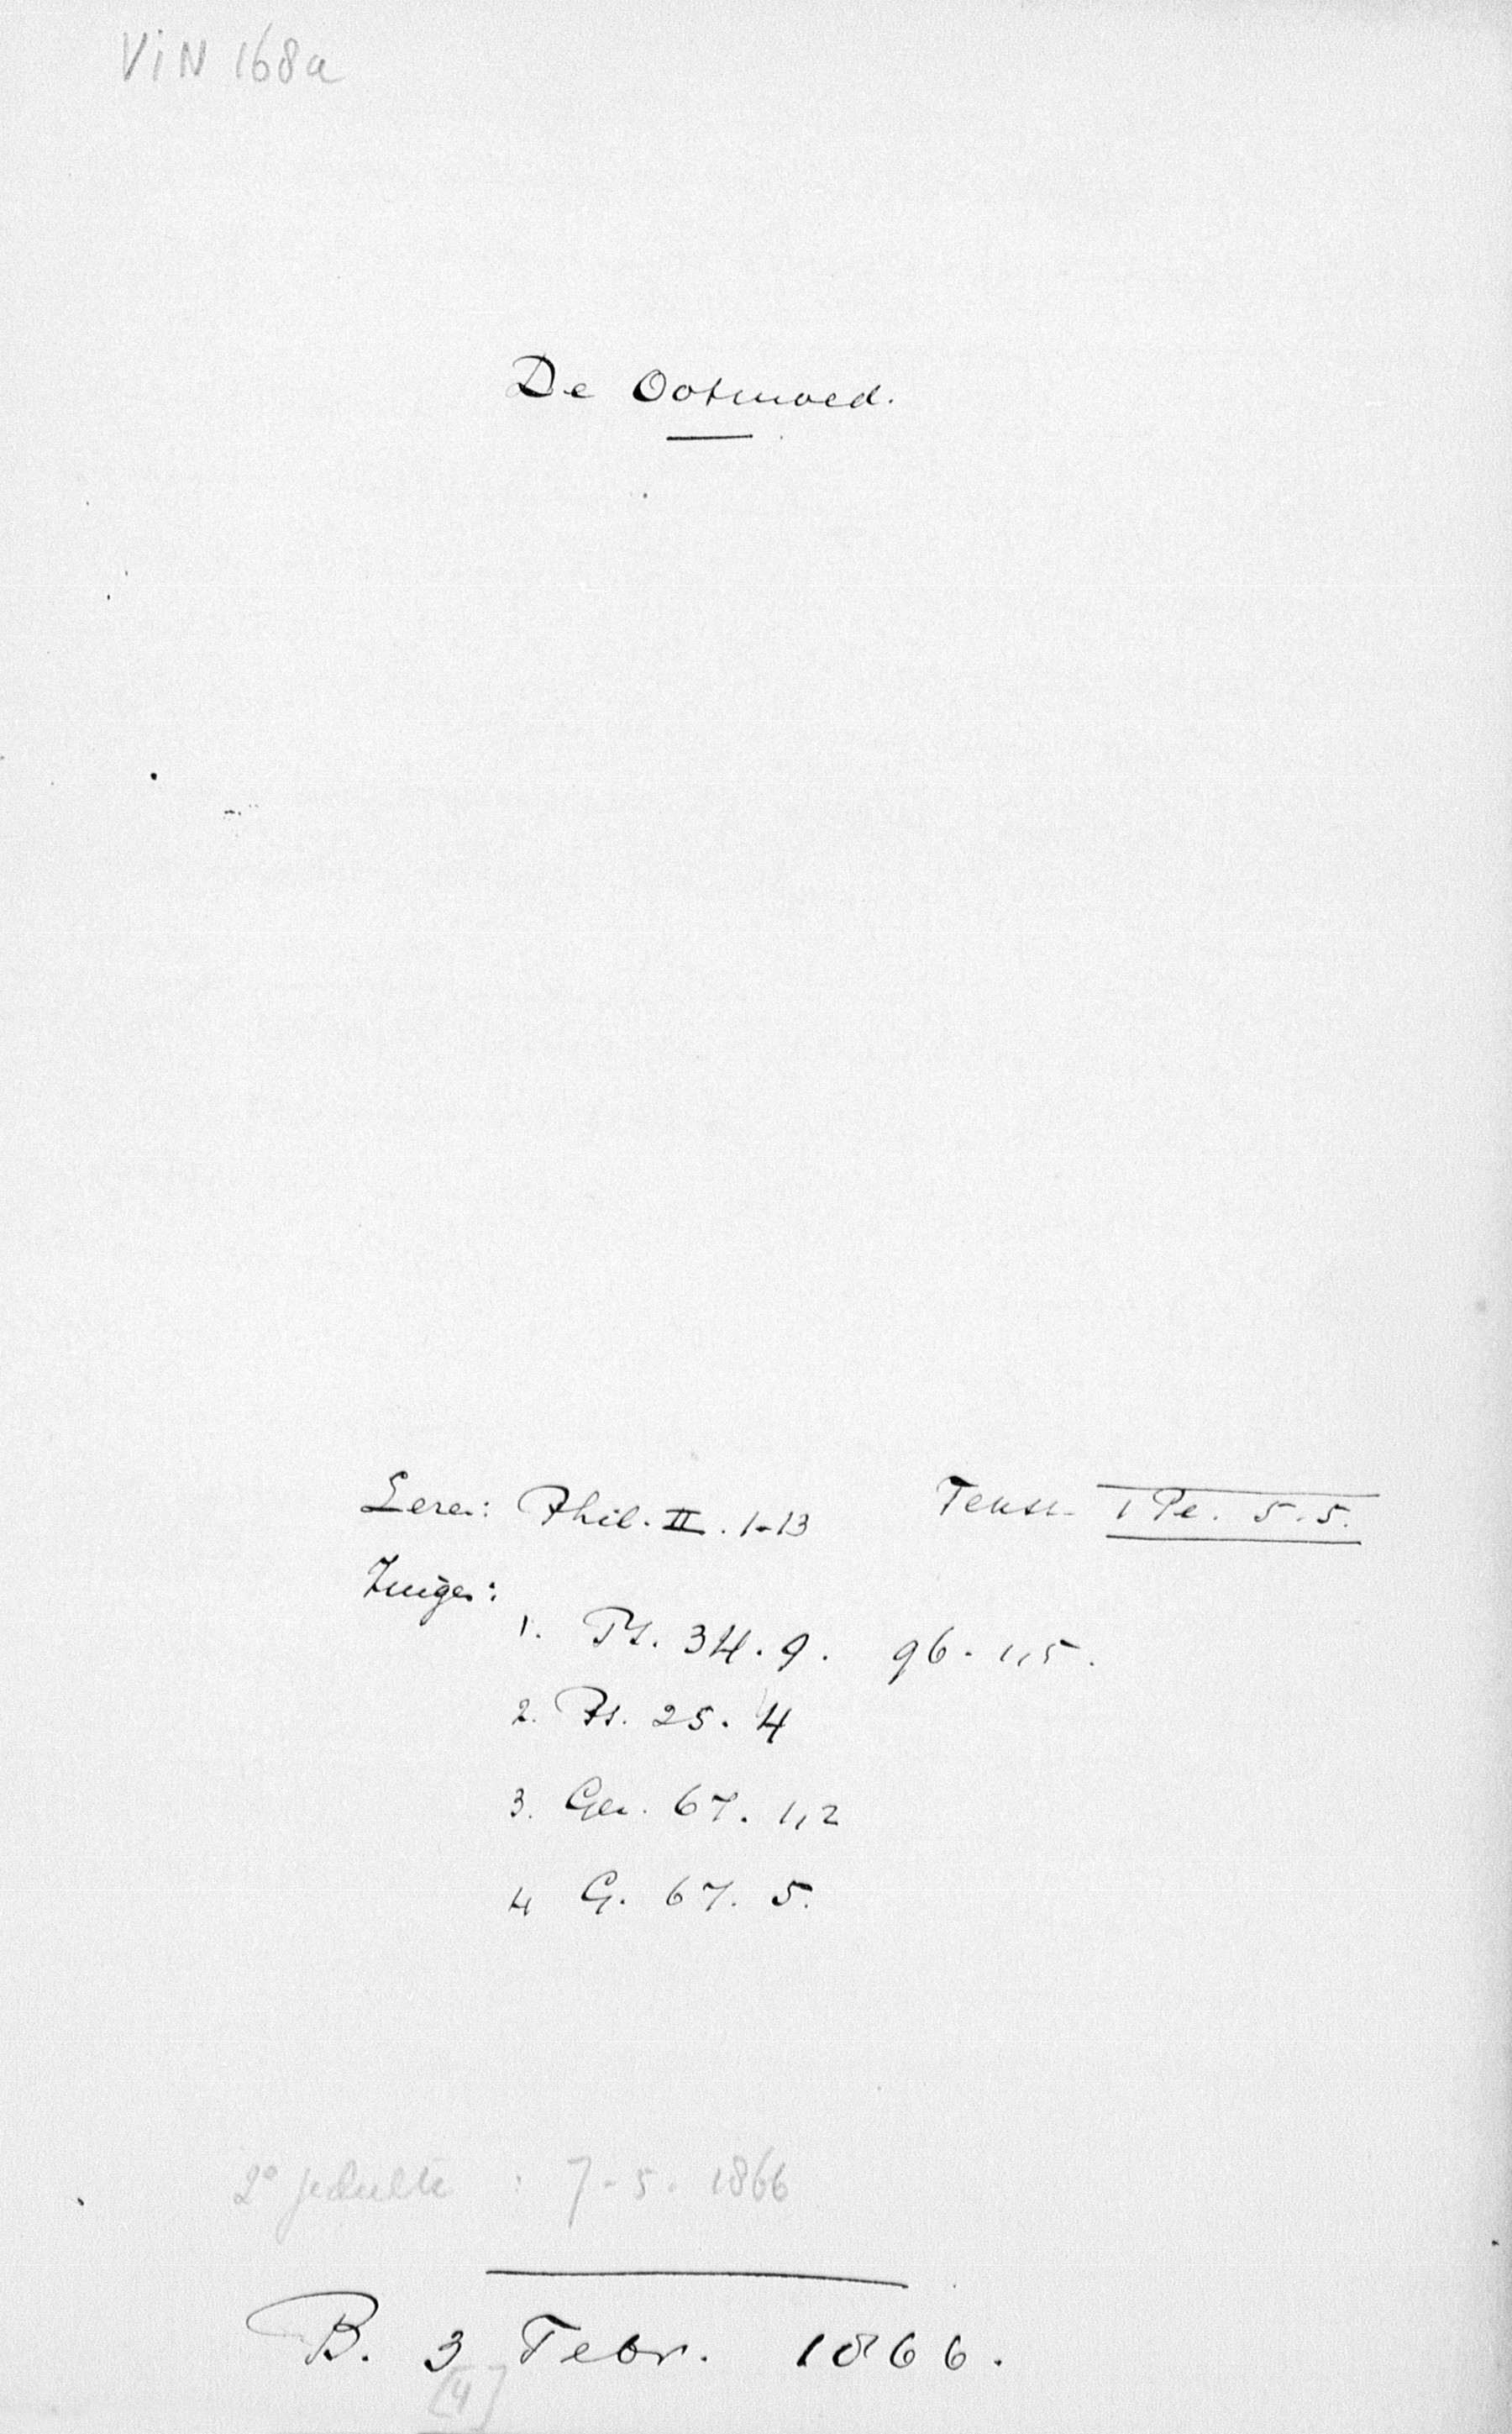 ViN 168a
De Ootmoed.
Lezen: Phil. II. 1-13 Tekst. 1 Pe. 5.5.
Zingen:
1. Ps. 34.9. 96. 1,5.
2. Ps. 25. 4
3. Gez. 67. 1,2
4 G. 67. 5.
2e gedeelte : 7-5. 1866
B. 3 Febr. 1866.
[4]